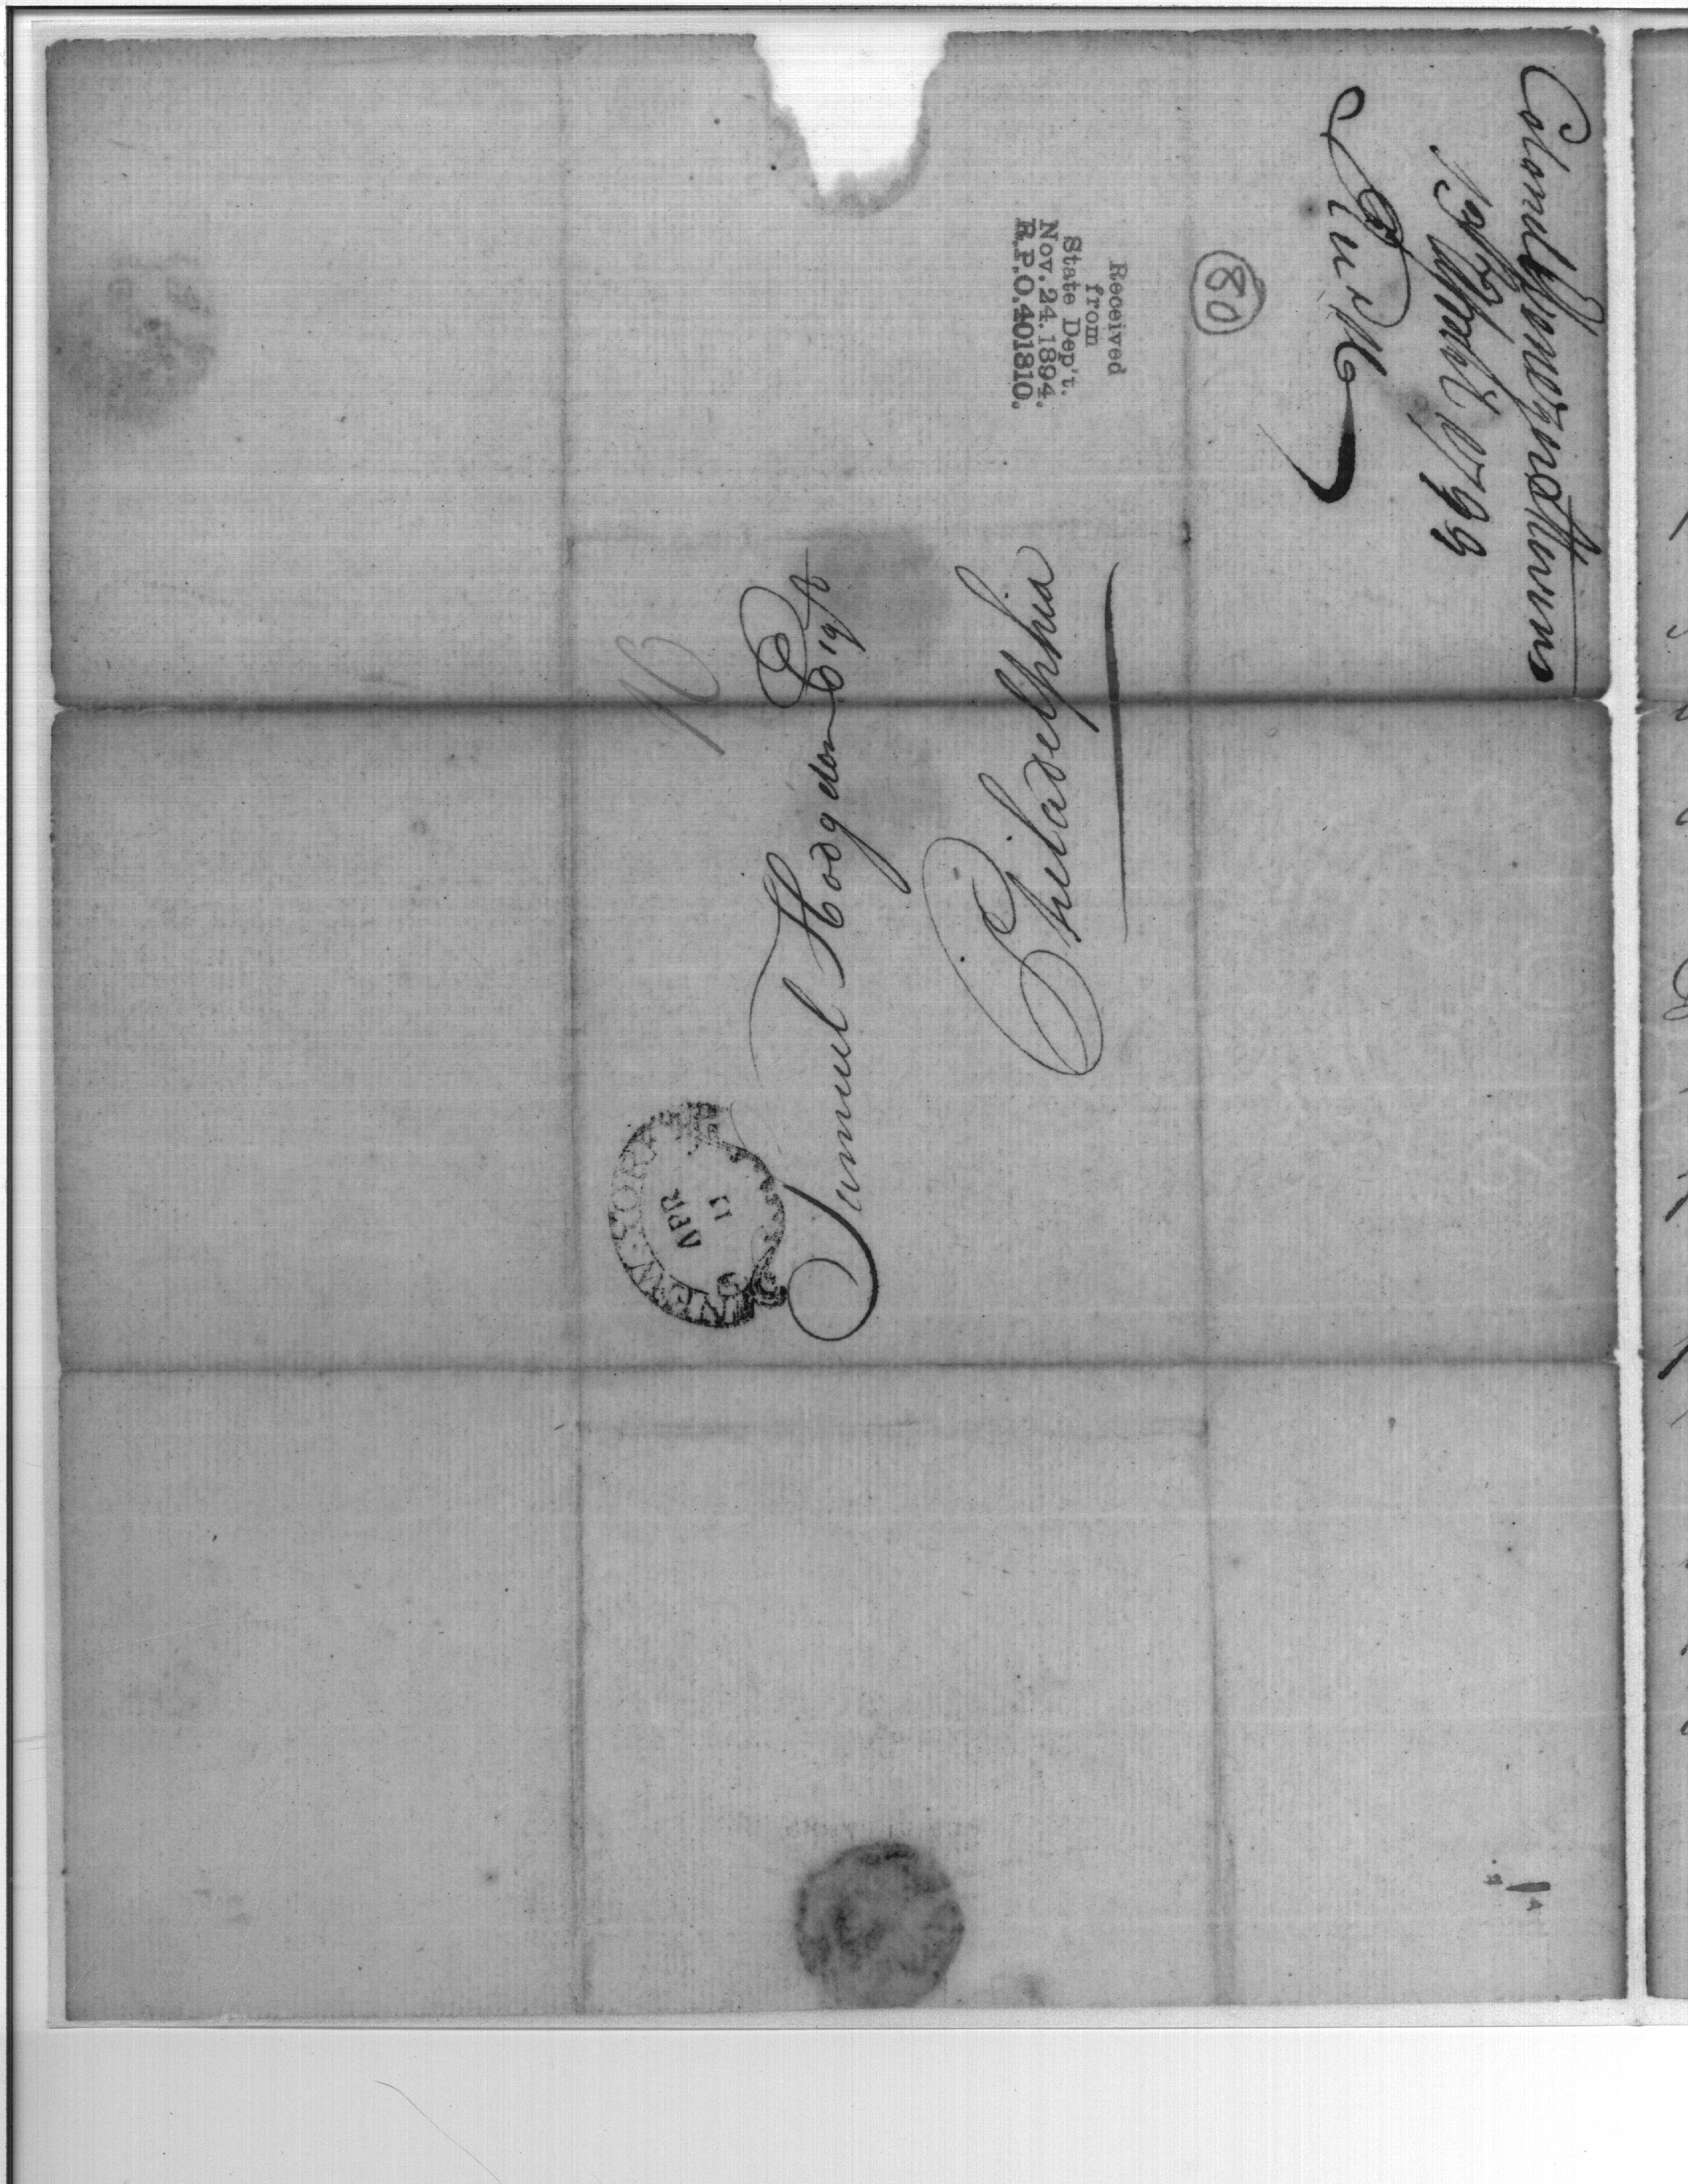 Samuel Hodgdon Esqr
Philadelphia
10
NEW-YORK
APR
11
Received
from
State Dep't.
Nov. 24. 1894.
R.P.O. 401810.
80
Colonel
April 1793